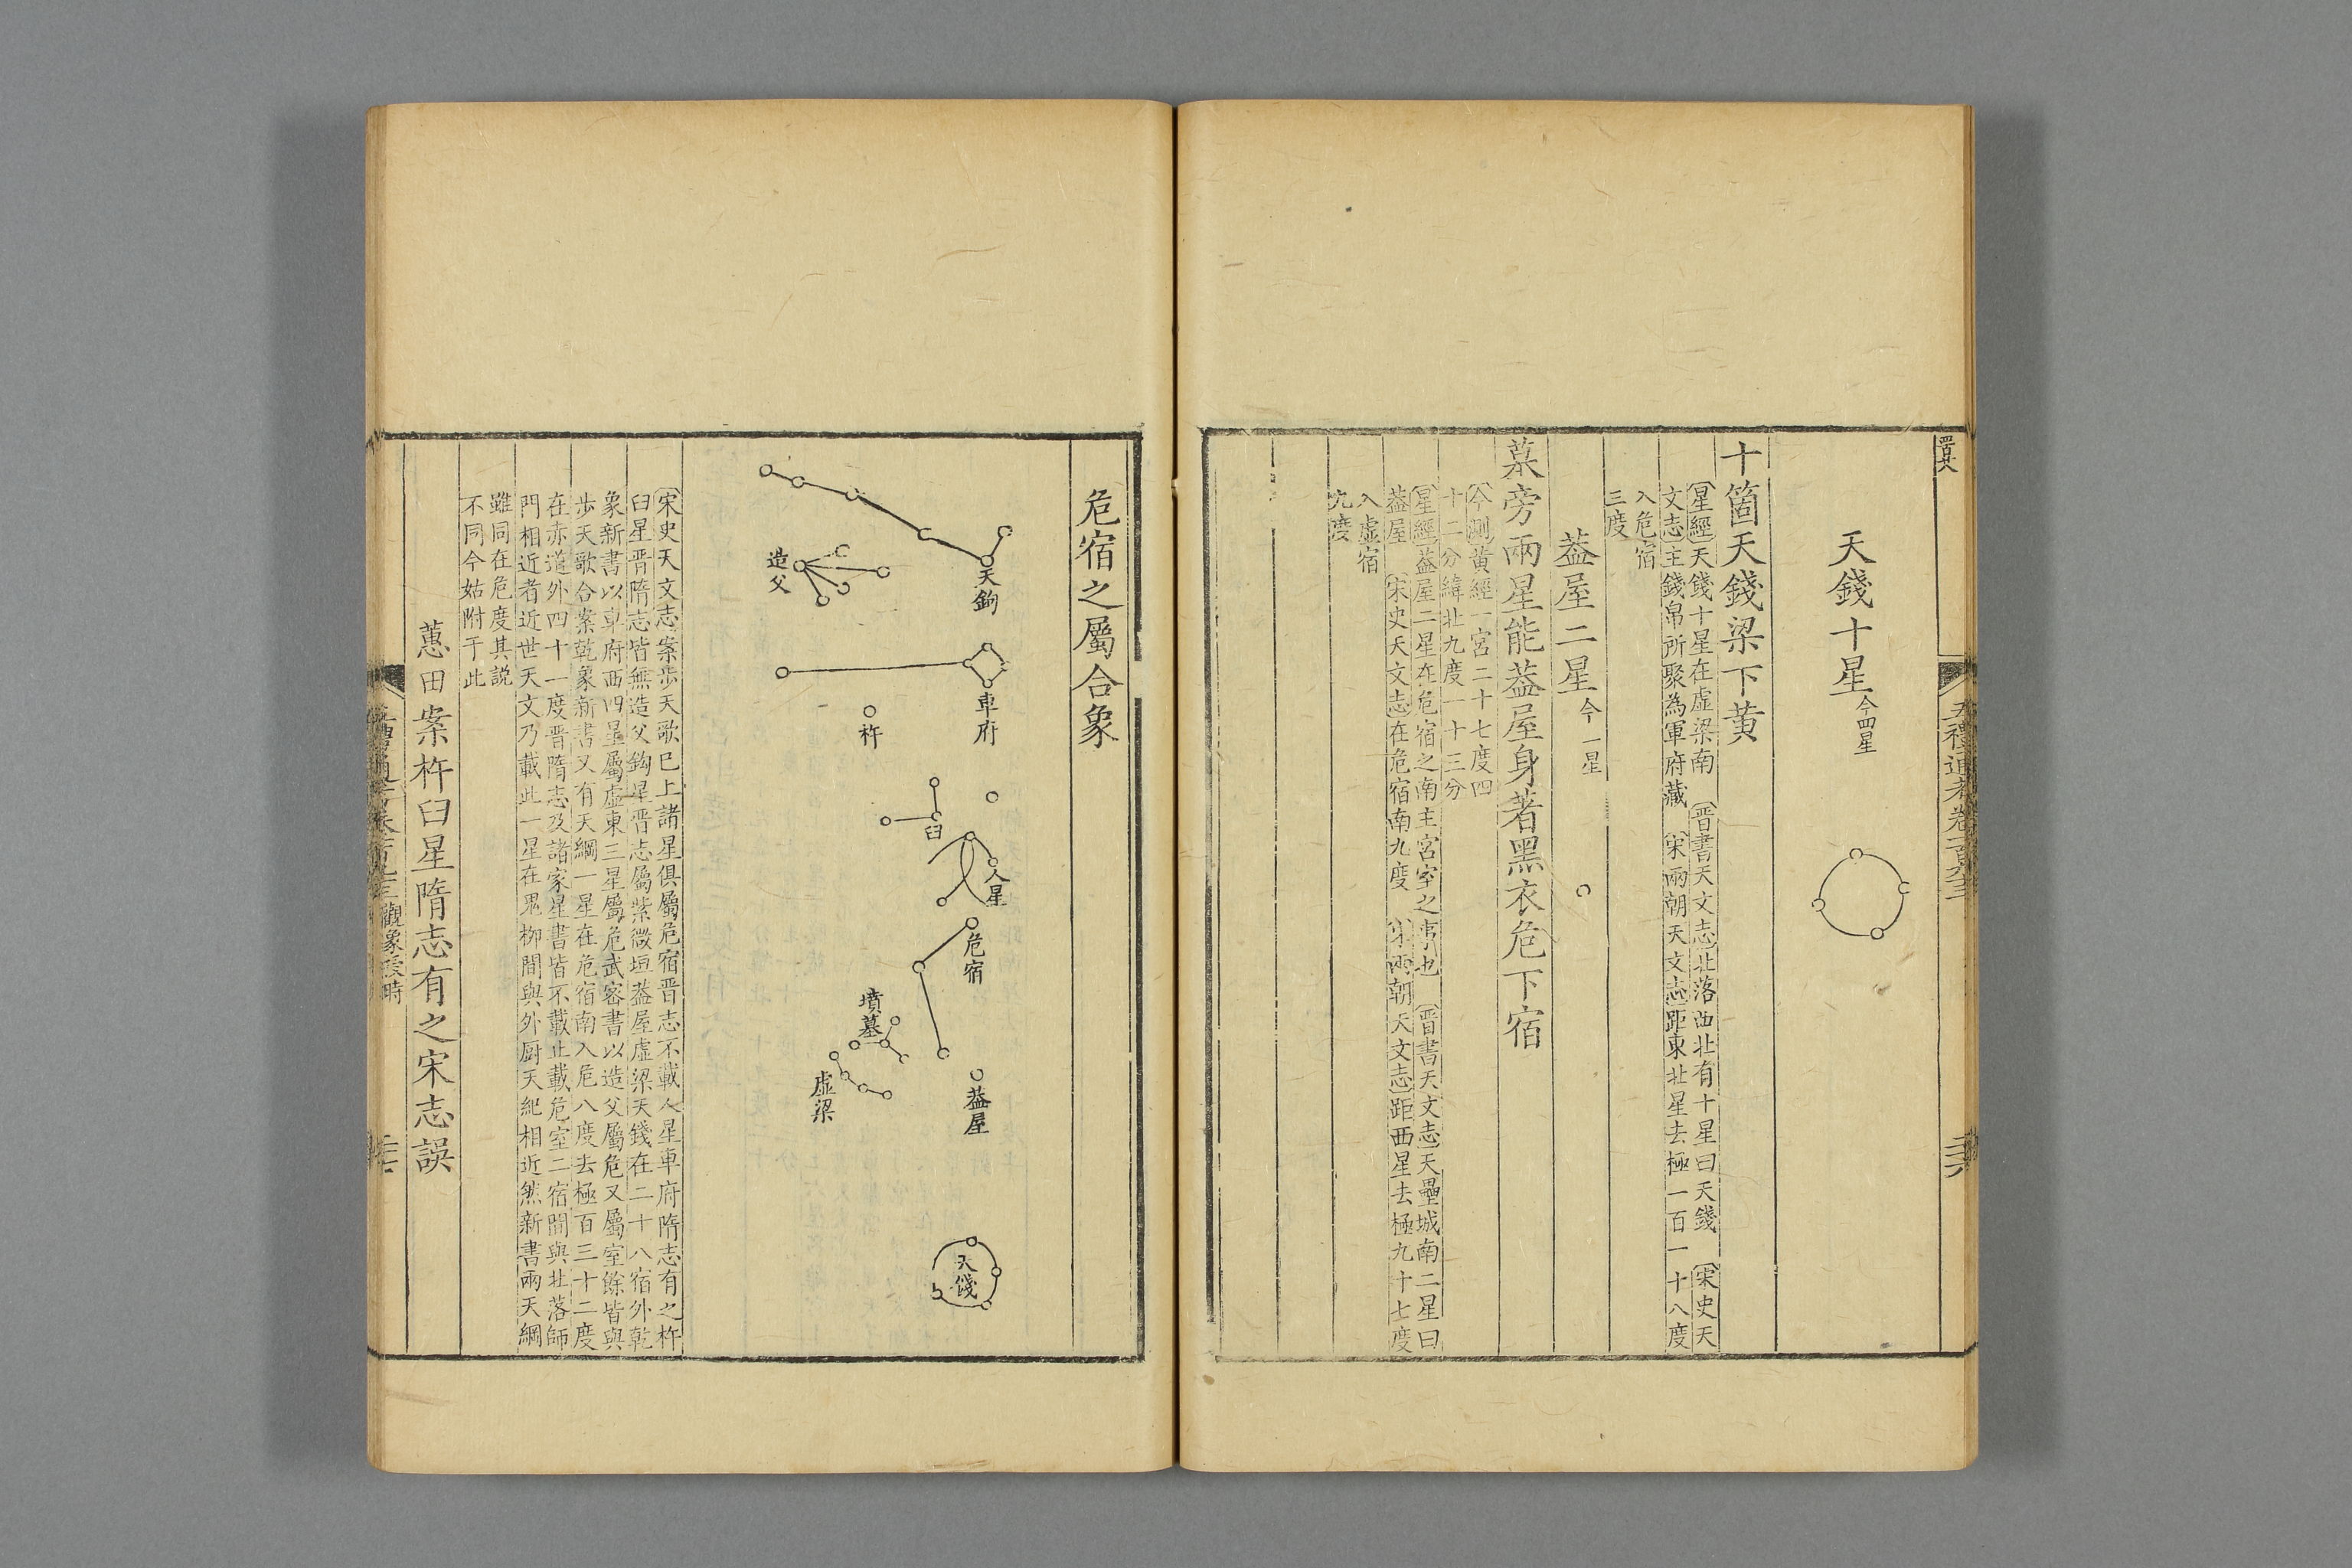 天錢十星今四星
十箇天錢梁下黃
〔星經〕天錢十星在虛梁南　〔晉書天文志〕北落西北有十星曰天錢　〔宋史天
文志〕主錢帛所聚為軍府藏　〔宋兩朝天文志〕距東北星去極一百一十八度
入危宿
三度
葢屋二星今一星
墓旁兩星能葢屋身著黑衣危下宿
〔今測黃經一宮二十七度四
十二分緯北九度一十三分
〔星經〕葢屋二星在危宿之南主宮室之事也　〔晉書天文志〕天壘城南二星曰
葢屋　〔宋史天文志〕在危宿南九度　〔宋兩朝天文志〕距西星去極九十七度
入虛宿
九度
五禮通考卷一百九十三
危宿之屬合象
天鉤
造父
車府
杵
臼
人星
危宿
墳墓
虛梁
葢屋
天錢
〔宋史天文志案步天歌巳上諸星俱屬危宿晉志不載人星車府隋志有之杵
臼星晉隋志皆無造父鈎星晉志屬紫微垣葢屋虛梁天錢在二十八宿外乾
象新書以車府西四星屬虛東三星屬危武密書以造父屬危又屬室餘皆與
步天歌合案乾象新書又有天綱一星在危宿南入危八度去極百三十二度
在赤道外四十一度晉隋志及諸家星書皆不載止載危室二宿間與北落師
門相近者近世天文乃載此一星在鬼柳間與外厨天紀相近然新書兩天綱
雖同在危度其說
不同今姑附于此
蕙田案杵臼星隋志有之宋志誤
觀象授時